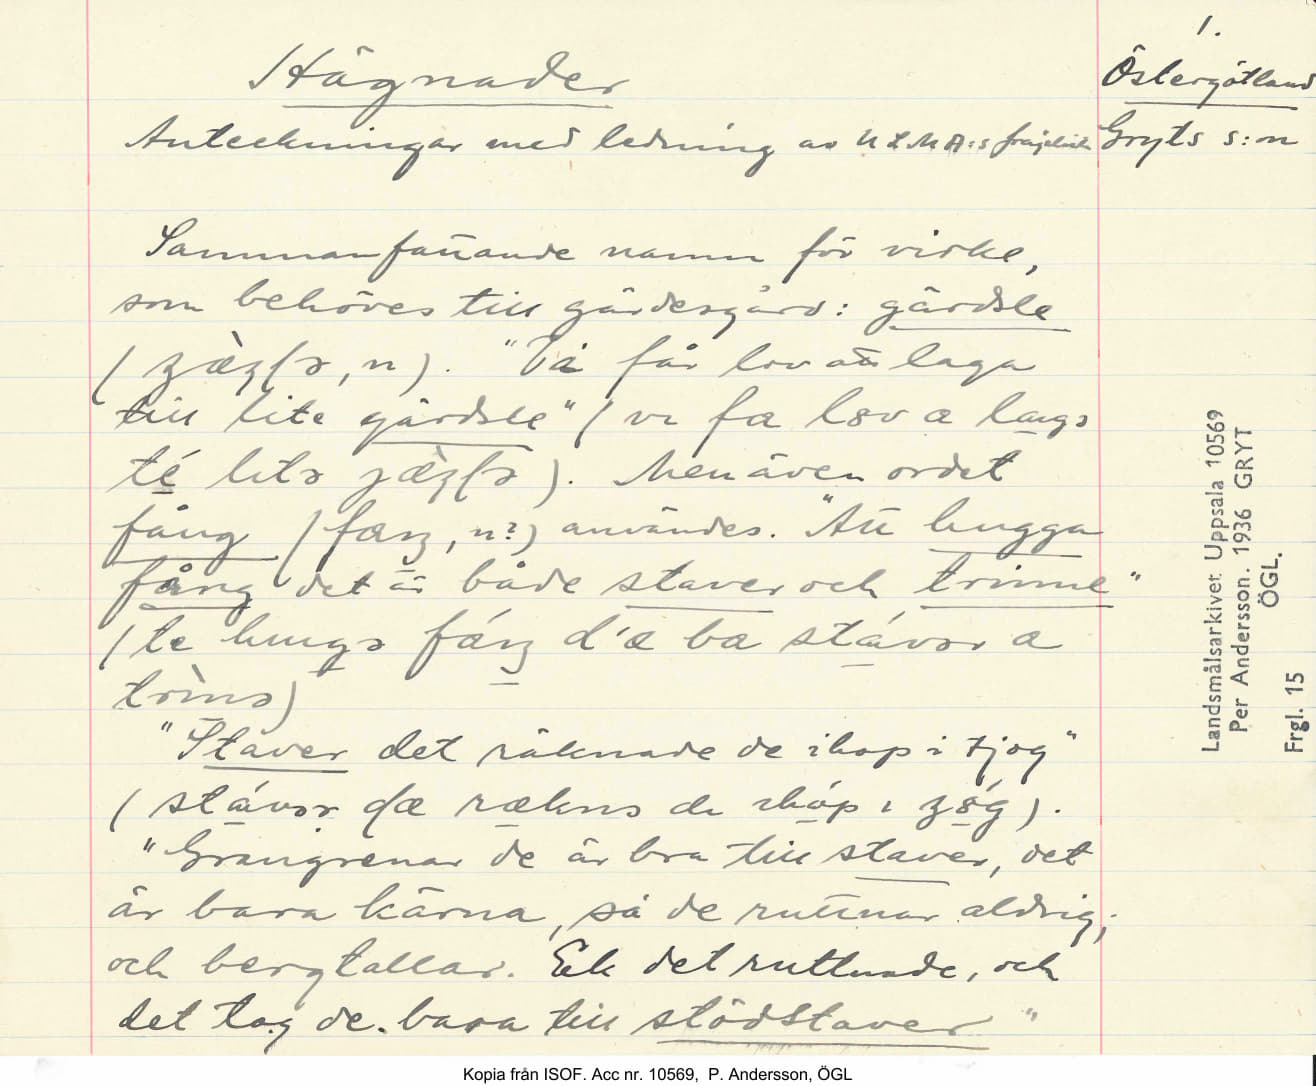 1.
Hägnader
Östergötland
Anteckningar med ledning av ULMA:s frågelista
Gryts s:n
Sammanfattande namn för virke,
som behöves till gärdesgård: gärdsle
(, n). "Vi får lov att laga
till lite gärdsle" (vi fa lov a
té litə). Men även ordet
fång (, n?) användes. "Att hugga
fång det är både staver och trinne"
(te fáŋ d'æ ba stávər a
trìnə)
"Staver det räknade de ihop i tjog"
(stávər dæ de ihóp i).
"Grangrenar de är bra till staver, det
är bara kärna, så de ruttnar aldrig,
och bergtallar. Ek det ruttnade, och
det tog de bara till stödstaver"
Landsmålsarkivet Uppsala 10569
Per Andersson. 1936 GRYT
ÖGL.
Frgl. 15
Kopia från ISOF. Acc nr. 10569, P. Andersson, ÖGL